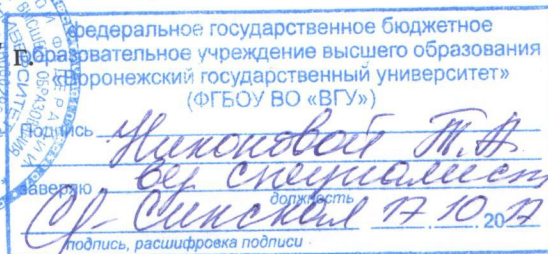 федеральное государственное бюджетное
образовательное учреждение высшего образования
«Воронежский государственный университет»
(ФГБОУ ВО «ВГУ»)
Подпись Никоновой Т.А.
заверяю вед специалист
должность
17.10.2017
подпись, расшифровка подписи